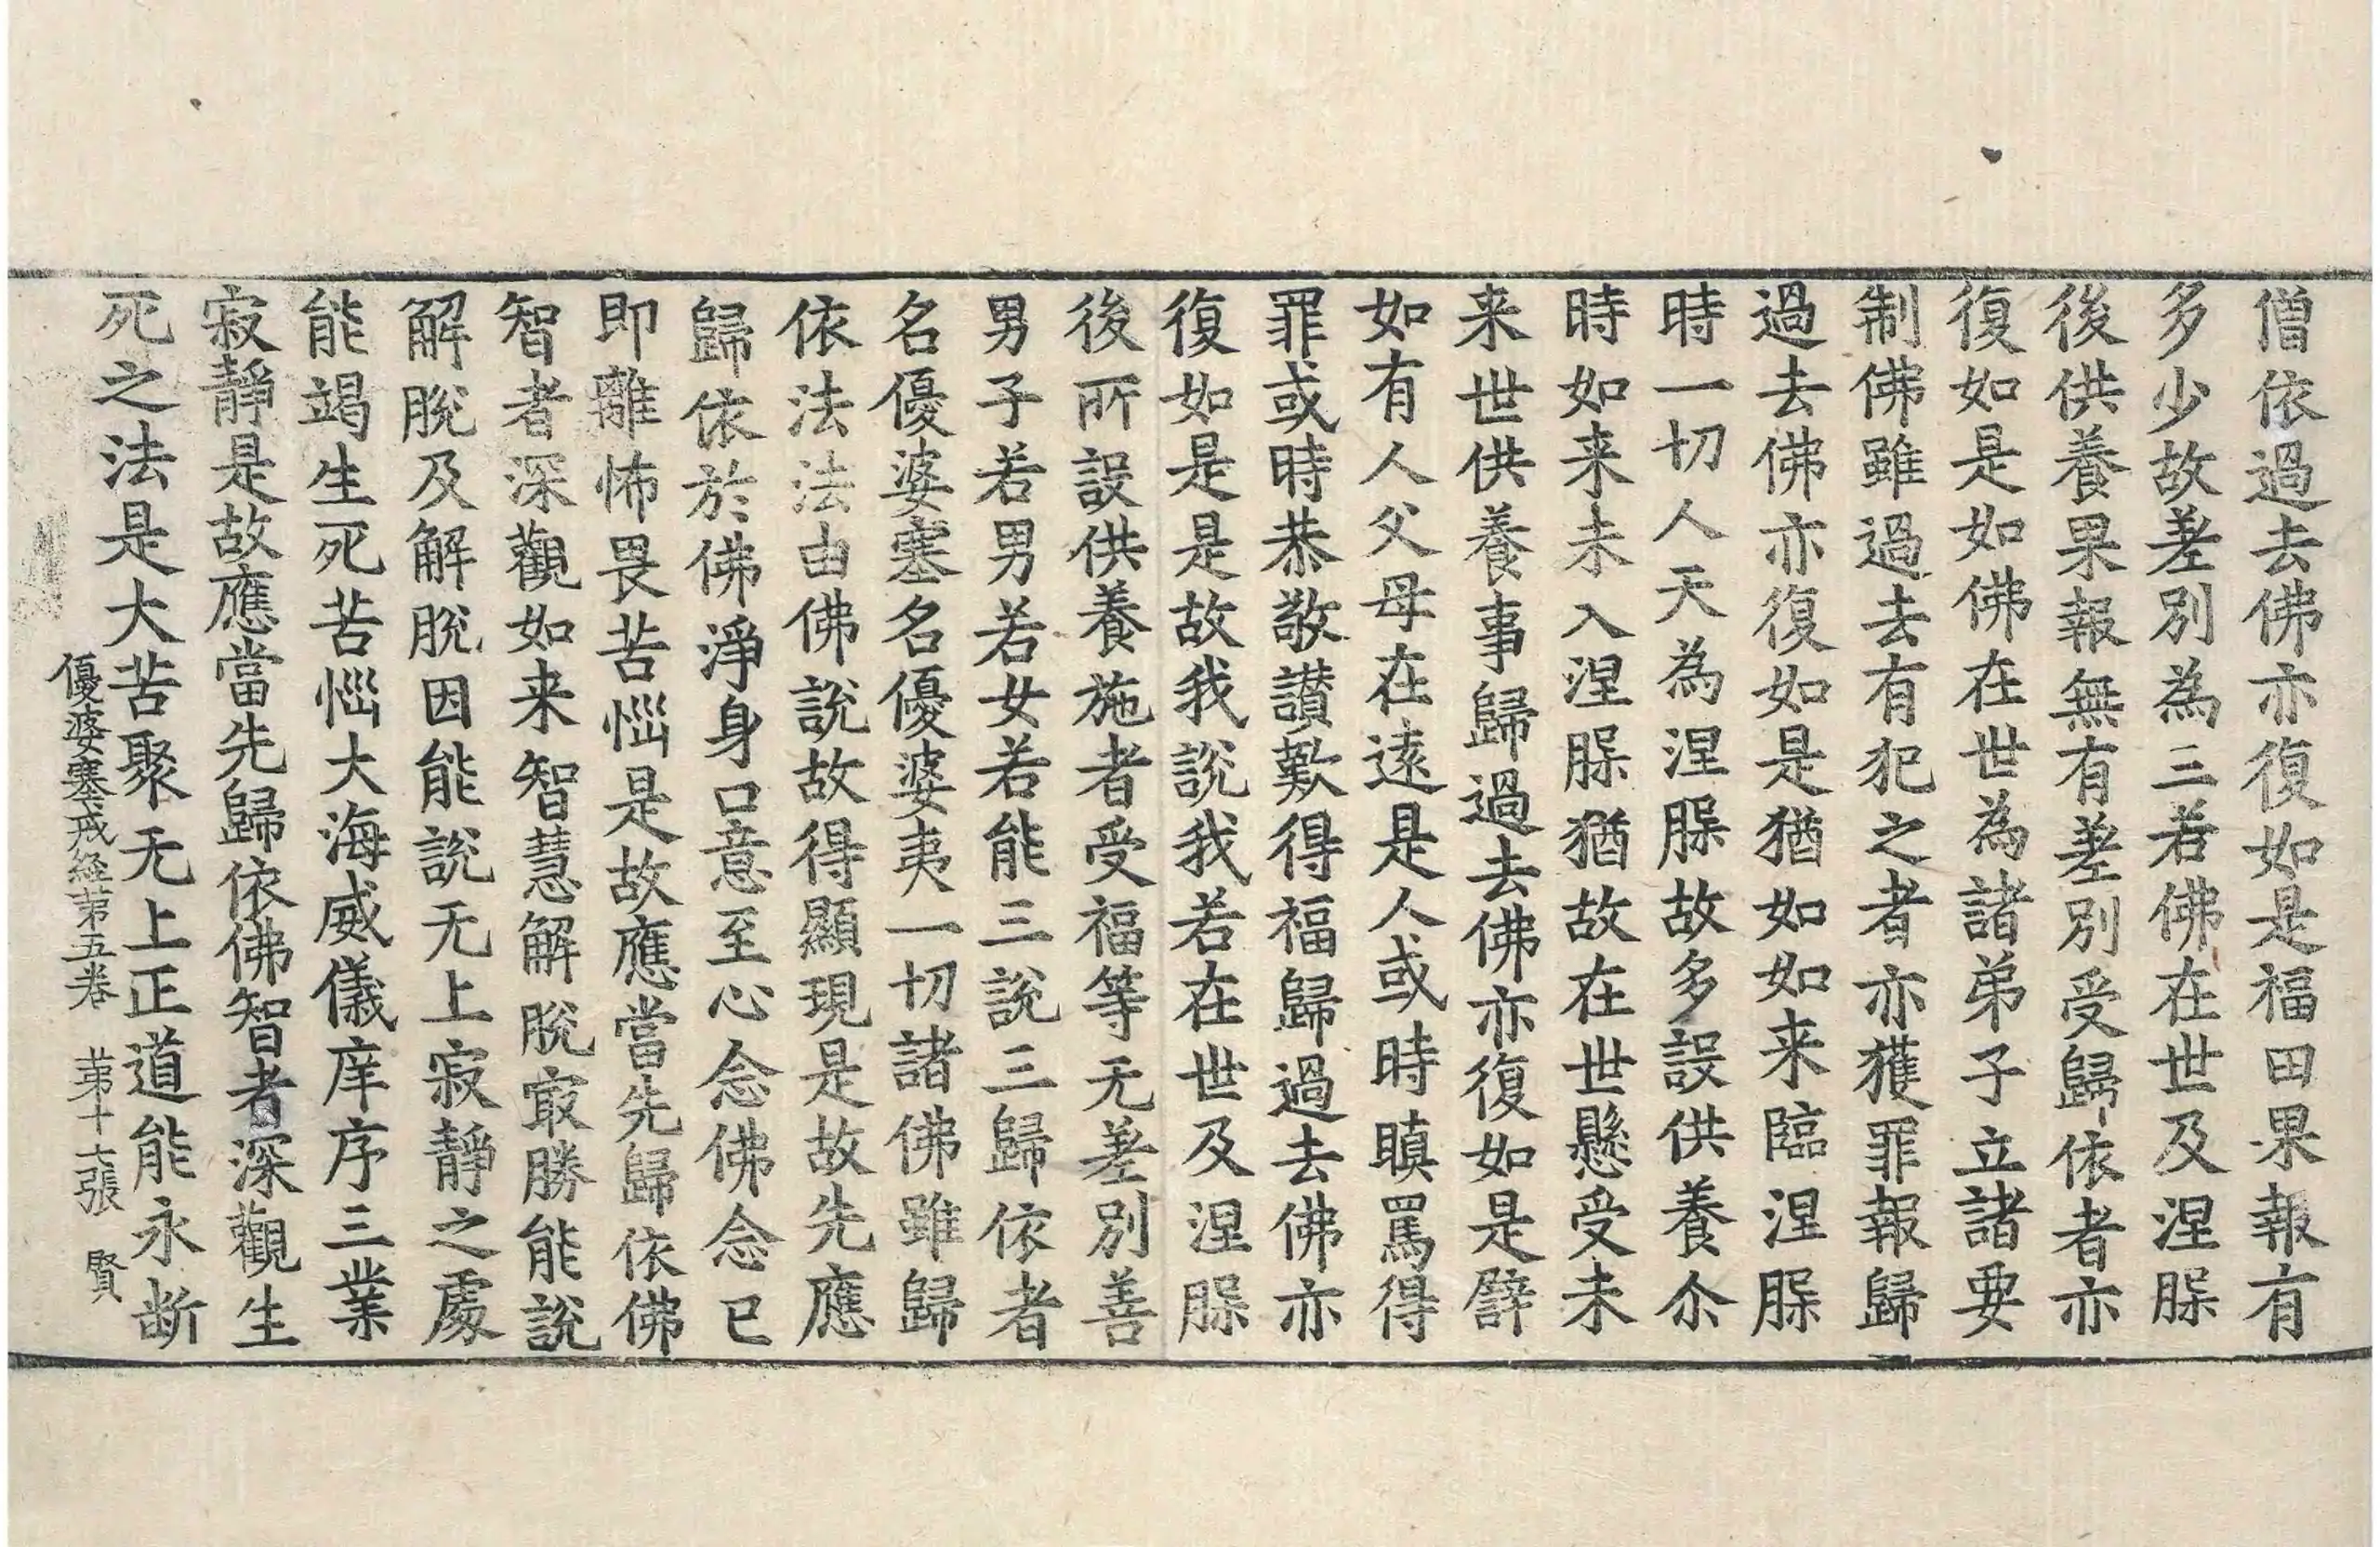 僧依過去佛亦復如是福田果報有
多少故差別為三若佛在世及涅槃
後供養果報無有差別受歸依者亦
復如是如佛在世為諸弟子立諸要
制佛雖過去有犯之者亦獲罪報歸
過去佛亦復如是猶如如来臨涅槃
時一切人天為涅槃故多設供養尒
時如来未入涅槃猶故在世懸受未
来世供養事歸過去佛亦復如是譬
如有人父母在遠是人或時瞋罵得
罪或時恭敬讃歎得福歸過去佛亦
復如是是故我說我若在世及涅槃
後所設供養施者受福等无差別善
男子若男若女若能三說三歸依者
名優婆塞名優婆夷一切諸佛雖歸
依法法由佛說故得顯現是故先應
歸依於佛淨身口意至心念佛念已
即離怖畏苦惱是故應當先歸依佛
智者深觀如来智慧解脫㝡勝能說
解脫及解脫因能說无上寂靜之處
能竭生死苦惱大海威儀庠序三業
寂靜是故應當先歸依佛智者深觀生
死之法是大苦聚无上正道能永断
優婆塞戒経苐五卷　苐十七張　賢